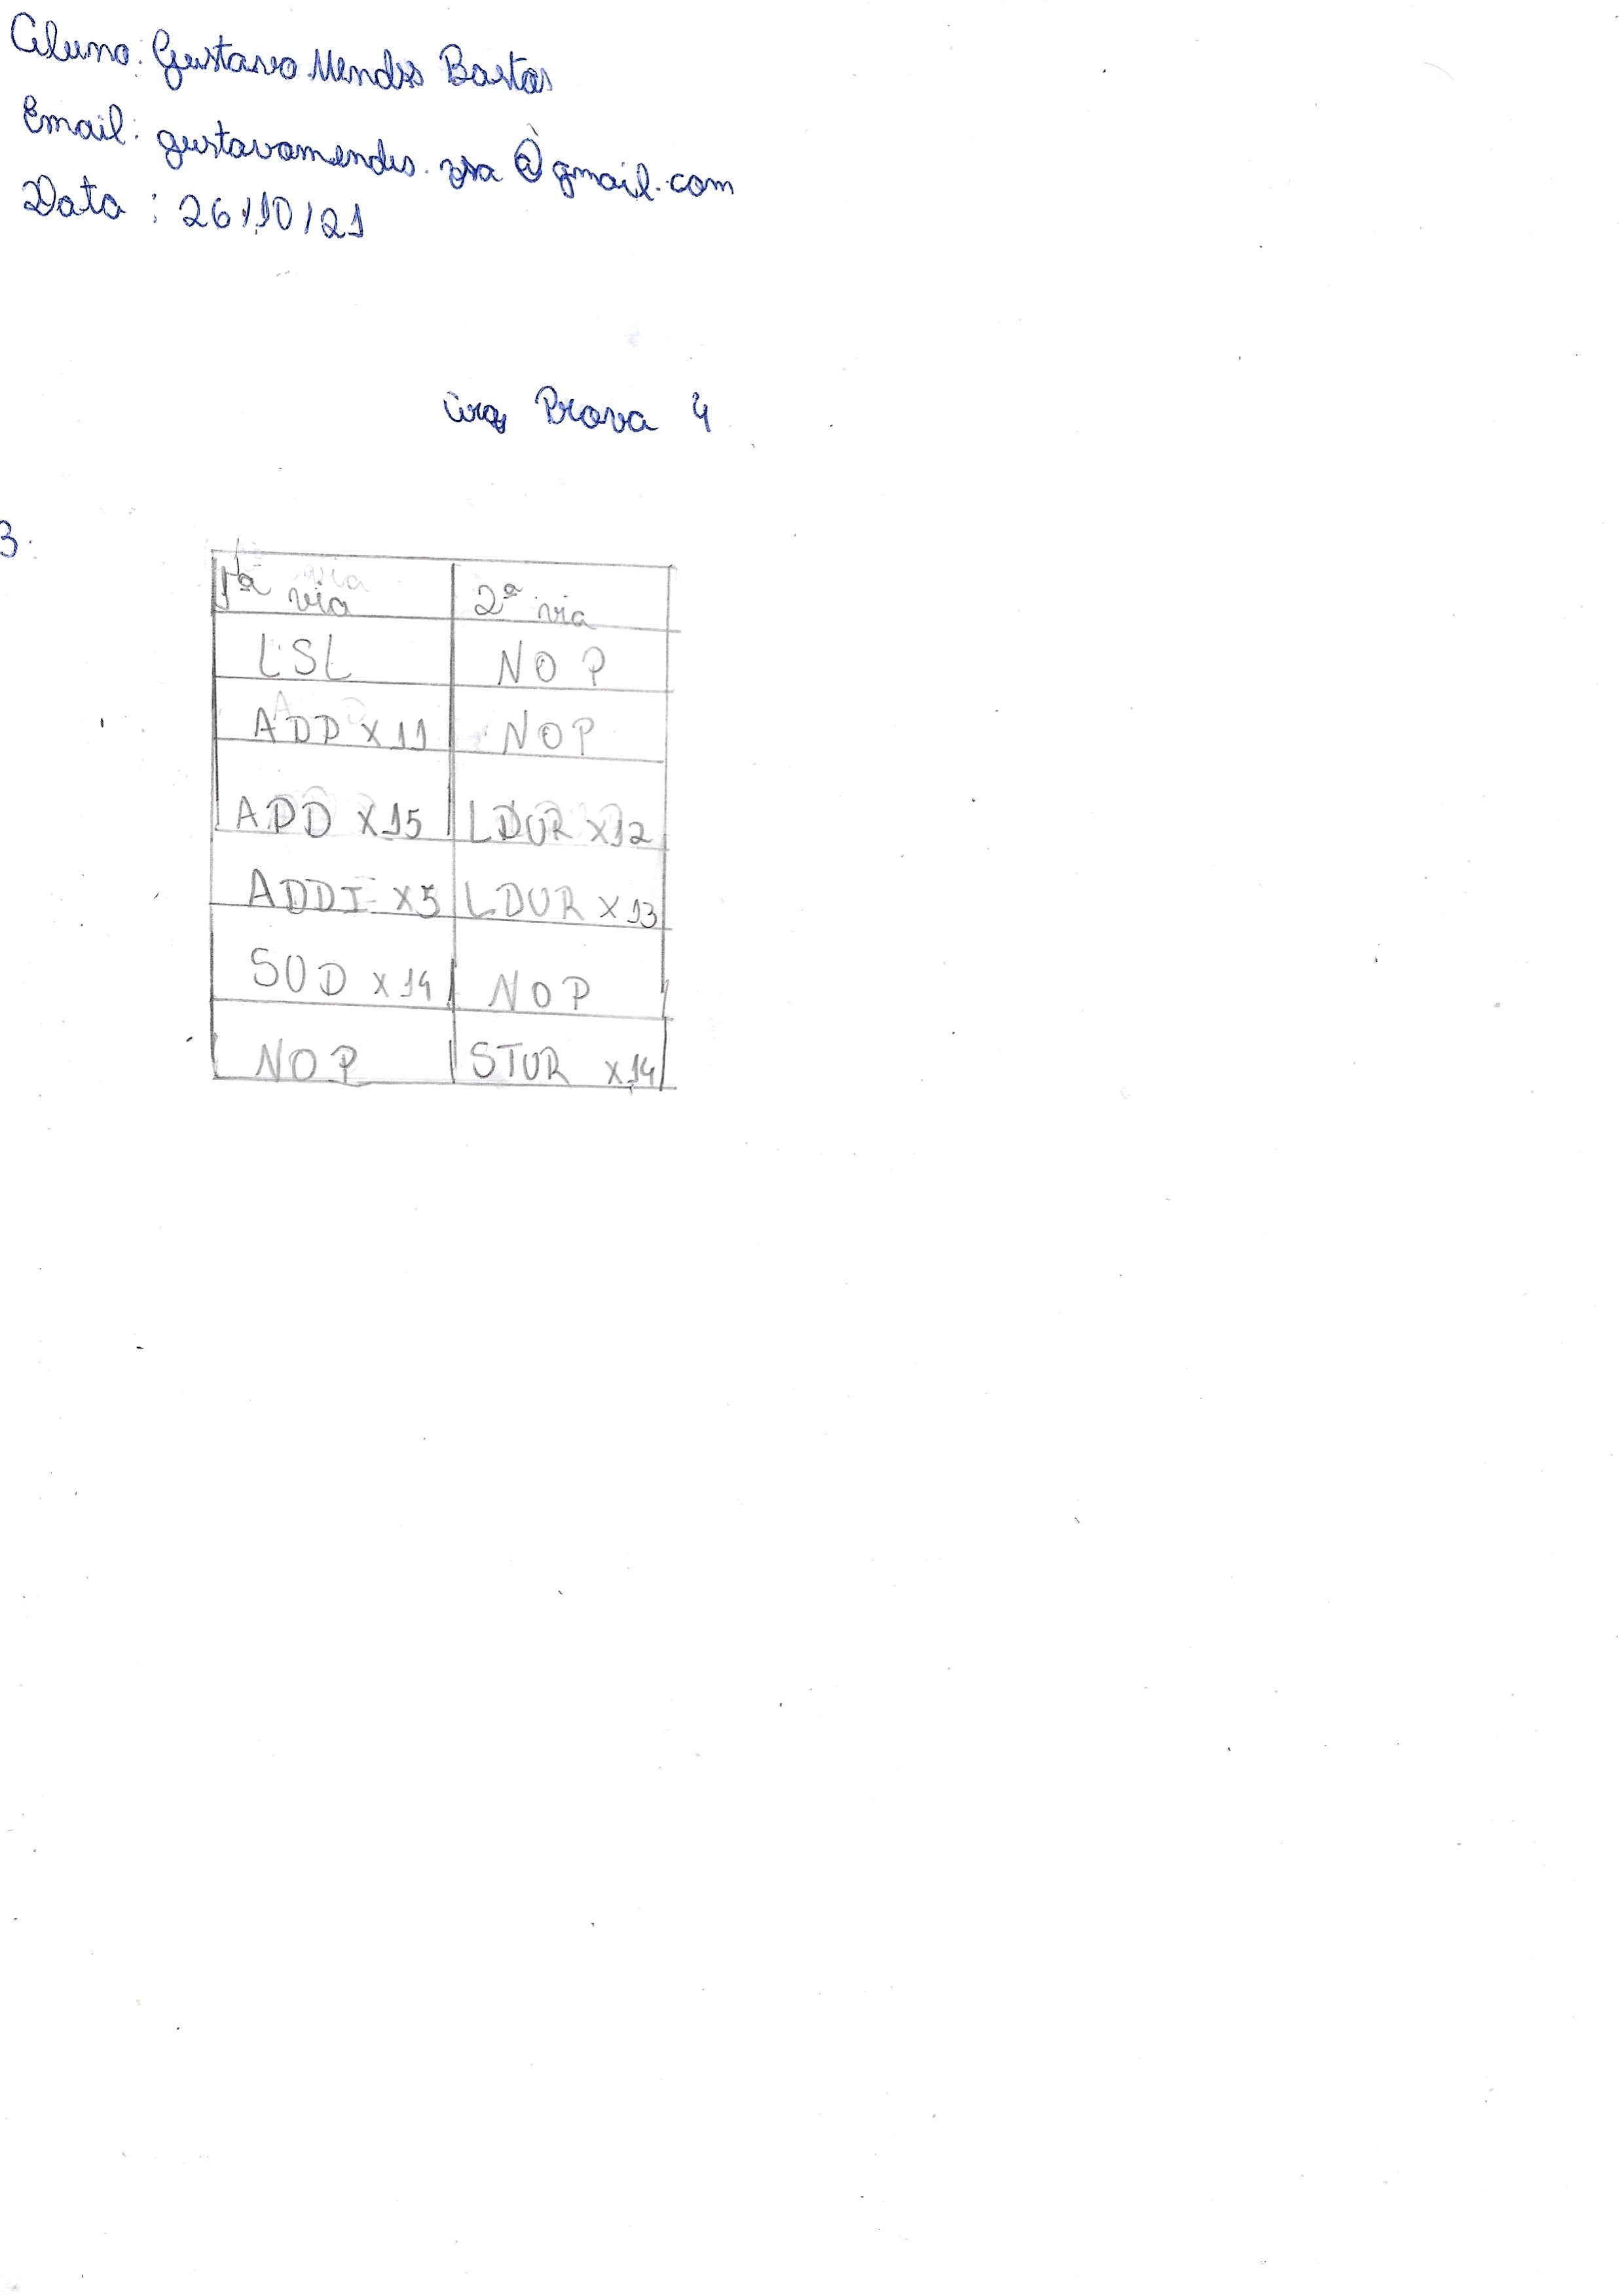 Aluno: Gustavo Mendes Bastos
Email: gustavomendes. @gmail.com
Data : 26/10/21
Prova 4
3.
1ª via 2ª via
LSL NOP
ADD X11 NOP
ADD X15 LDUR X12
ADDI X5 LDUR X13
SUD X14 NOP
NOP STUR X14